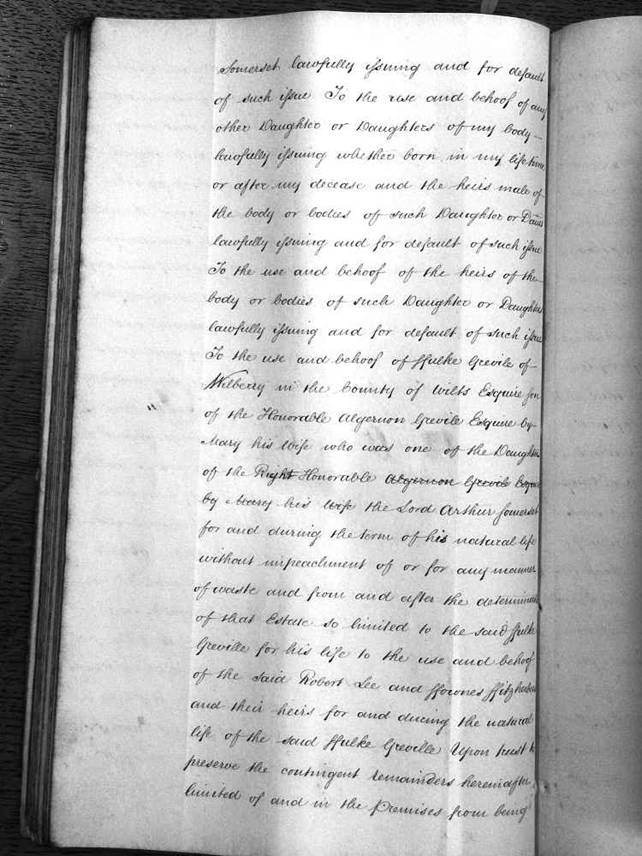 Somerset lawfully issuing and for default
of such issue To the use and behoof of any
other Daughter or Daughters of my body
lawfully issuing whether born in my life time
or after my decease and the heirs male of
the body or bodies of such Daughter or
lawfully issuing and for default of such issue
To the use and behoof of the heirs of the
body or bodies of such Daughter or Daughters
lawfully issuing and for default of such issue
To the use and behoof of ffulke Grevile of
Wilbery in the County of Wilts Esquire son
of the Honorable Algernon Grevile Esquire by
Mary his Wife who was one of the Daughters
of the Right Honorable Algernon Grevile Esquire
by Mary his Wife the Lord Arthur Somerset
for and during the term of his natural life
without impeachment of or for any manner
of waste and from and after the
of that Estate so limited to the said ffulke
Greville for his life to the use and behoof
of the said Robert Lee and ffownes ffitzherbert
and their heirs for and during the natural
life of the said ffulke Greville Upon trust to
preserve the contingent remainders hereinafter
limited of and in the Premises from being